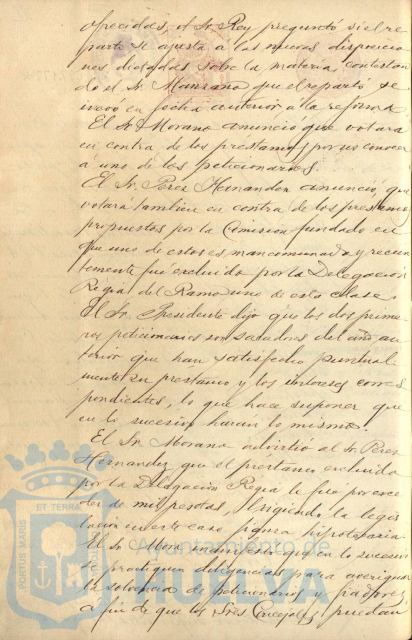 ofrecidas, el Sr. Rey preguntó si el re
parto se ajusta a las nuevas disposicio
nes dictadas sobre la materia, contestan
do el Sr. Manzano que el reparto se
hizo en fecha anterior a la reforma.
El Sr. Morano anunció que votara
en contra de los prestamos por no conocer
a uno de los peticionarios.
El Sr. Perez Hernandez anunció, que
votará tambien en contra de los prestamos
propuestos por la Comision fundado en
que uno de estos es mancomunado y recien
temente fue excluido por la Delegación
Regia del Ramo uno de esta clase.
El Sr. Presidente dijo que los dos prime
ros peticionarios son sacadores del año an
terior que han satisfecho puntual
mente su prestamo y los intereses corres
pondientes, lo que hace suponer que
en lo sucesivo haran lo mismo.
El Sr. Morano advirtió al Sr. Perez
Hernandez que el prestamo excluido
por la Delegación Regia lo fué por exce
der de mil pesetas, exigiendo la legis
lación en este caso fianza hipotecaria.
El Sr. Mora que en lo sucesivo
se practiquen diligencias para averiguar
la solvencia de peticionarios y fiadores
a fin de que los Sres. Concejales puedan
PORTUS MARIS ET TERRAE
Ayuntamiento de
HUELVA